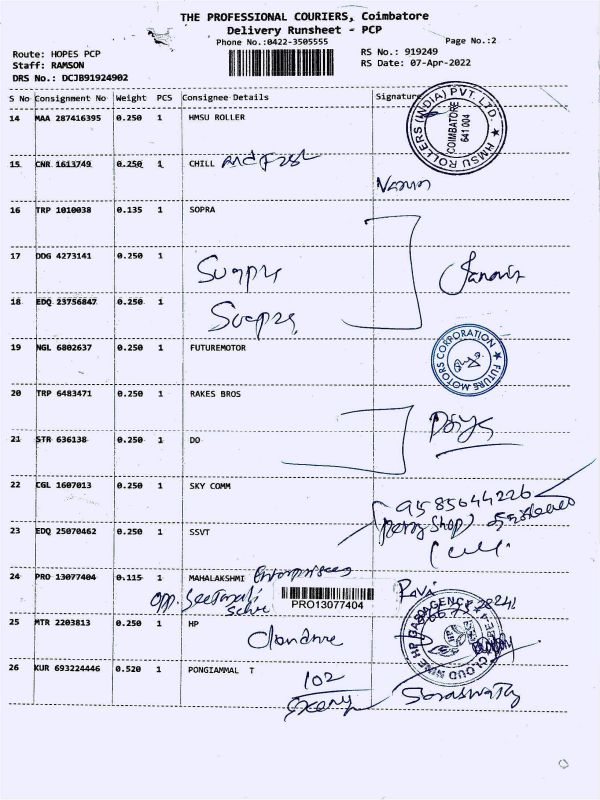 THE PROFESSIONAL COURIERS, Coimbatore
Delivery Runsheet - PCP
Phone No.:0422-3505555 Page No.:2
Route: HOPES PCP RS No.: 919249
Staff: RAMSON RS Date: 07-Apr-2022
DRS No.: DCJB91924902
S No Consignment No Weight PCS Consignee Details Signature
14 MAA 287416395 0.250 1 HMSU ROLLER
HMSU ROLLERS (INDIA) PVT. LTD. ★
COIMBATORE
641 004
15 CNR 1613749 0.250 1 CHILL
16 TRP 1010038 0.135 1 SOPRA
17 DDG 4273141 0.250 1
18 EDQ 23756847 0.250 1
19 NGL 6802637 0.250 1 FUTUREMOTOR
★ FUTURE MOTORS CORPORATION
20 TRP 6483471 0.250 1 RAKES BROS
21 STR 636138 0.250 1 DO
22 CGL 1607013 0.250 1 SKY COMM
9585644226
23 EDQ 25070462 0.250 1 SSVT
24 PRO 13077404 0.115 1 MAHALAKSHMI Enterprises
opp.
PRO13077404
Ravi
25 MTR 2203813 0.250 1 HP
CLOUD NINE HP GAS AGENCE
26 KUR 693224446 0.520 1 PONGIAMMAL T 102
Saraswathy